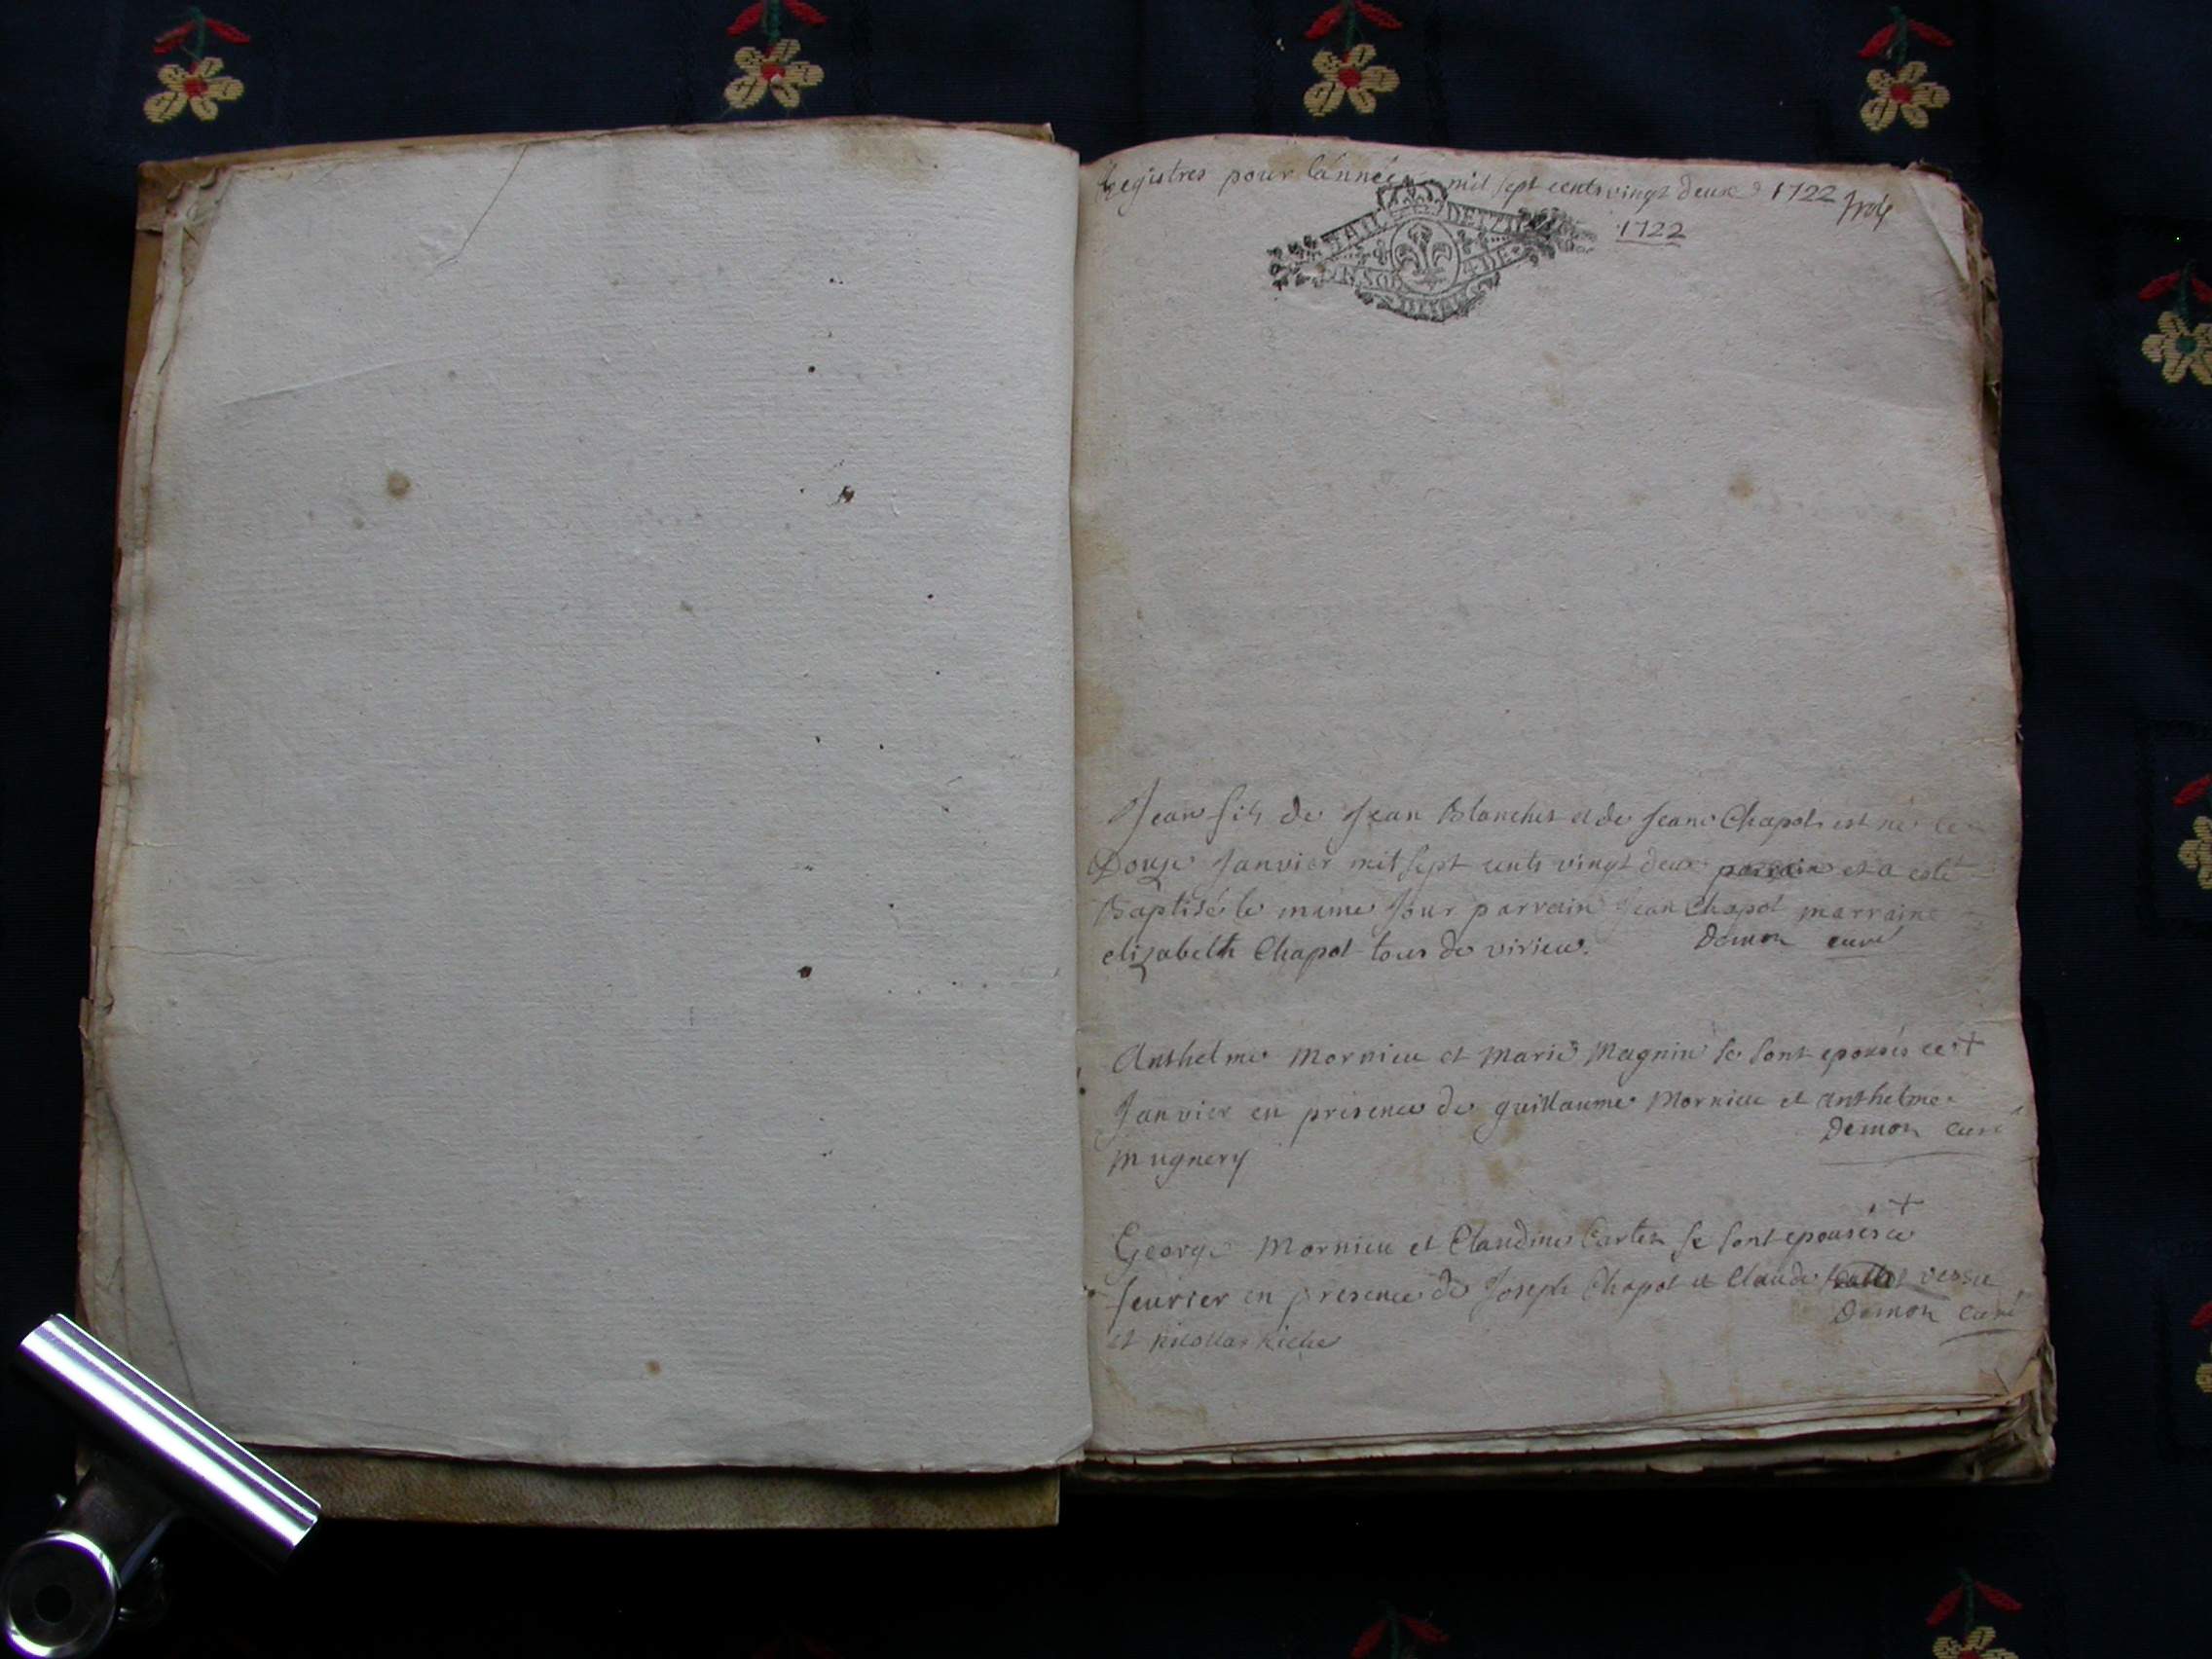 Registres pour lannée mil sept cents vingt deux 1722
1722
Jean fils de Jean Blanchet et de Jeane Chapot est né le
Douze Janvier mil sept cents vingt deux parrain et a esté
Baptisé le mime Jour parrain Jean Chapot marraine
elizabeth Chapot tous de virieu. Demon curé
Anthelme Mornieu et Marie Magnin se sont epousés ce +
Janvier en presence de guillaume Mornieu et Anthelme
Demon curé
Mugnery
+
George Mornieu et Claudine Carter se sont epousés ce
feurier en presence de Joseph Chapot et Claude
Demon curé
et